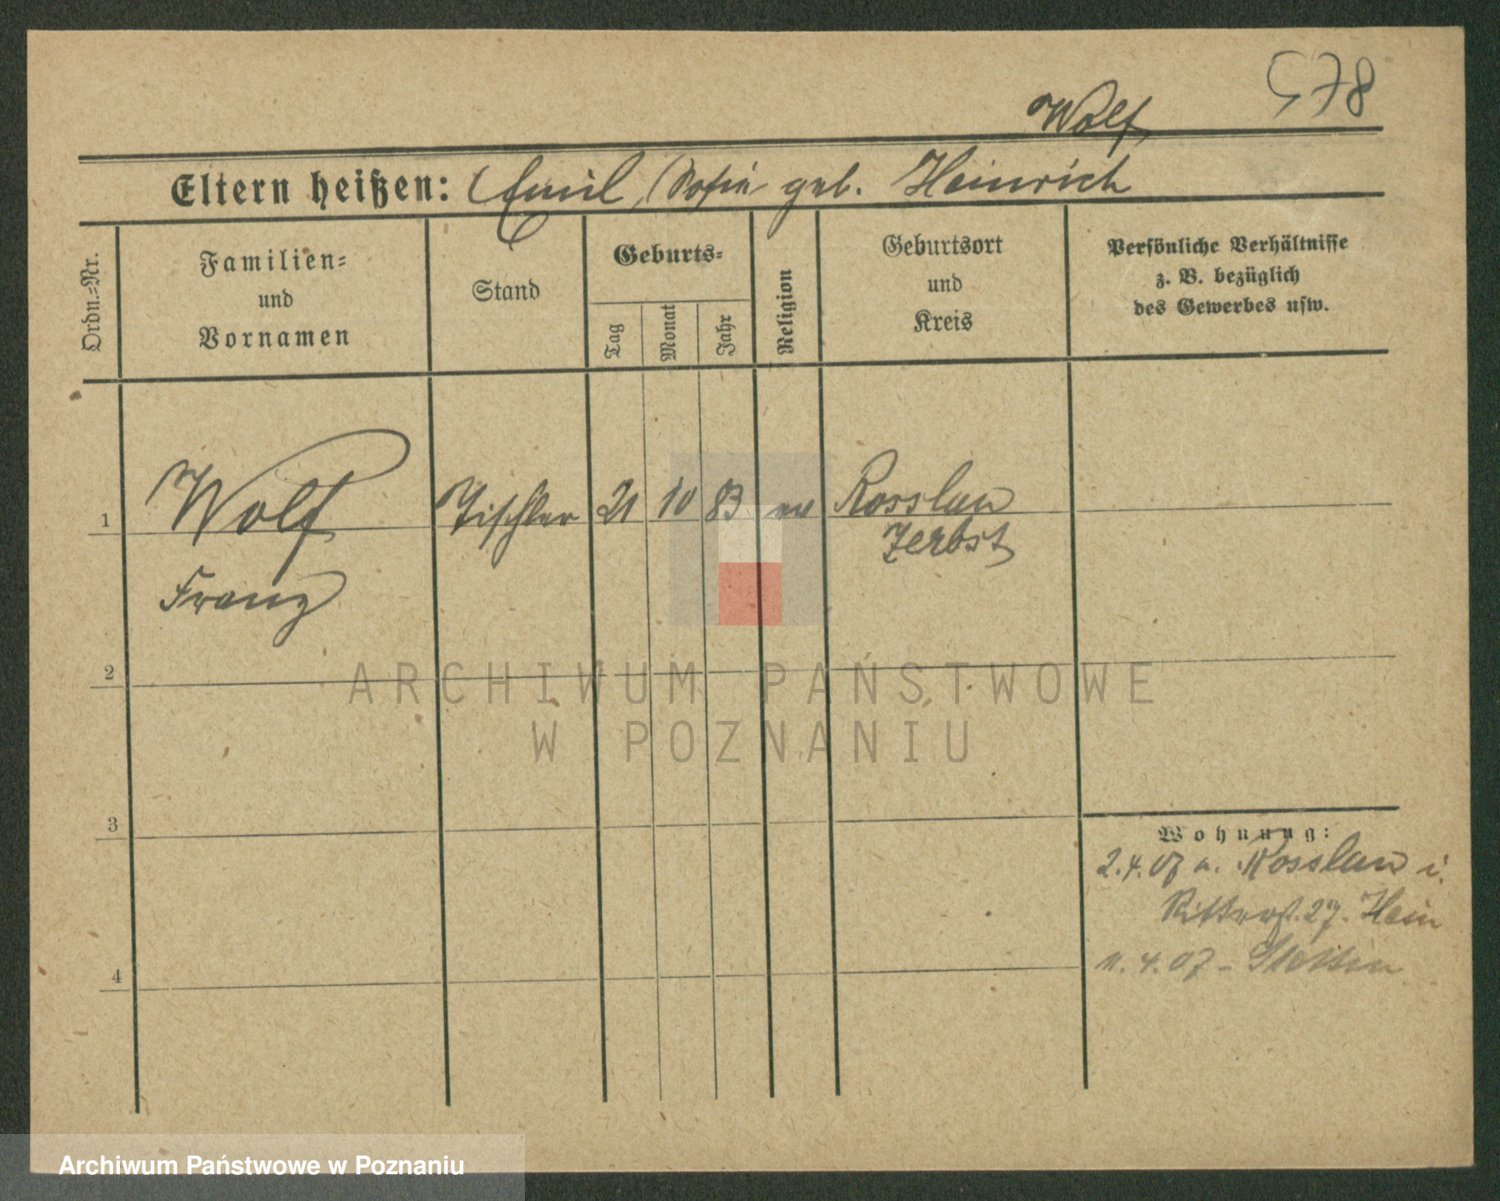 578
Wolf
Eltern heißen: Emil, Sofie geb. Heinrich
Ordn.=Nr.
Familien=
und
Vornamen
Stand
Geburts=
Tag
Monat
Jahr
Religion
Geburtsort
und
Kreis
Persönliche Verhältnisse
z. B. bezüglich
des Gewerbes usw.
1
Wolf
Franz
Tischler
21
10
83
ev
Rosslau
Zerbst
2
3
4
Wohnung:
2.4.07 v. Rosslau i.
Ritterst. 27. Hein
11.4.07 - Stettin
ARCHIWUM PAŃSTWOWE
W POZNANIU
Archiwum Państwowe w Poznaniu